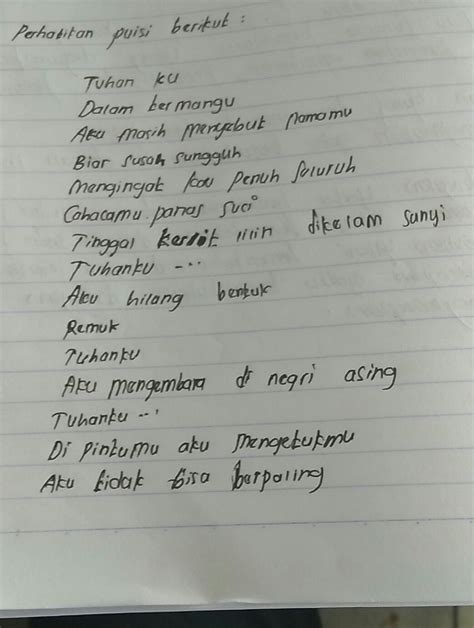 Perhatikan puisi berikut :
Tuhan ku
Dalam bermangu
Aku masih menyebut Namamu
Biar susah sungguh
Mengingat kau penuh seluruh
Cahacamu panas suci
Tinggal kerdit lilin dikelam sunyi
Tuhanku ...
Aku hilang bentuk
Remuk
Tuhanku
Aku mengembara di negri asing
Tuhanku ...
Di pintumu aku mengetukmu
Aku tidak bisa berpaling